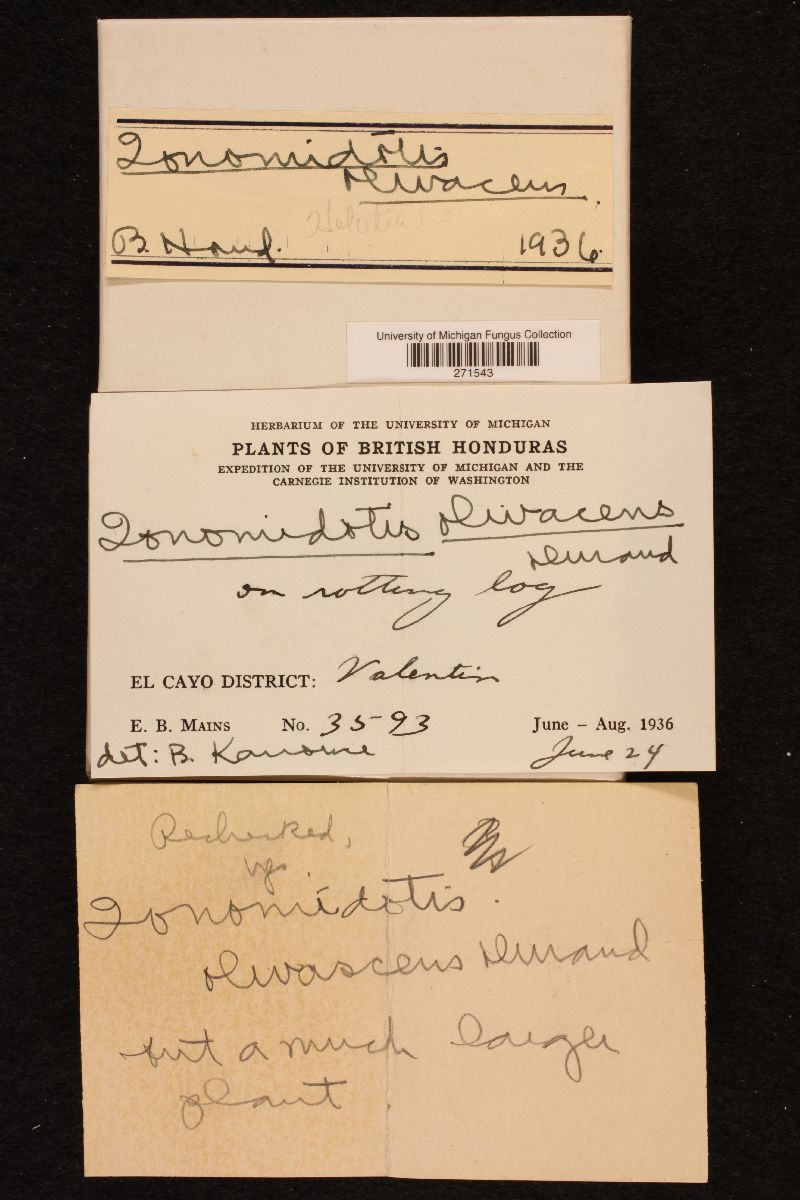 Ionomidotis
olivacens.
Helotia
B. Hond. 1936.
University of Michigan Fungus Collection
271543
HERBARIUM OF THE UNIVERSITY OF MICHIGAN
PLANTS OF BRITISH HONDURAS
EXPEDITION OF THE UNIVERSITY OF MICHIGAN AND THE
CARNEGIE INSTITUTION OF WASHINGTON
Ionomidotis olivacens
Durand
on rotting log
EL CAYO DISTRICT: Valentin
E. B. MAINS No. 3593 June – Aug. 1936
det: B. Kanouse June 24
Rechecked,
Ionomidotis.
olivascens Durand
but a much larger
plant.